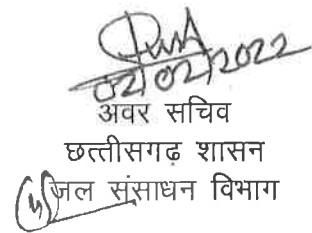 02/02/2022
अवर सचिव
छत्तीसगढ़ शासन
जल संसाधन विभाग